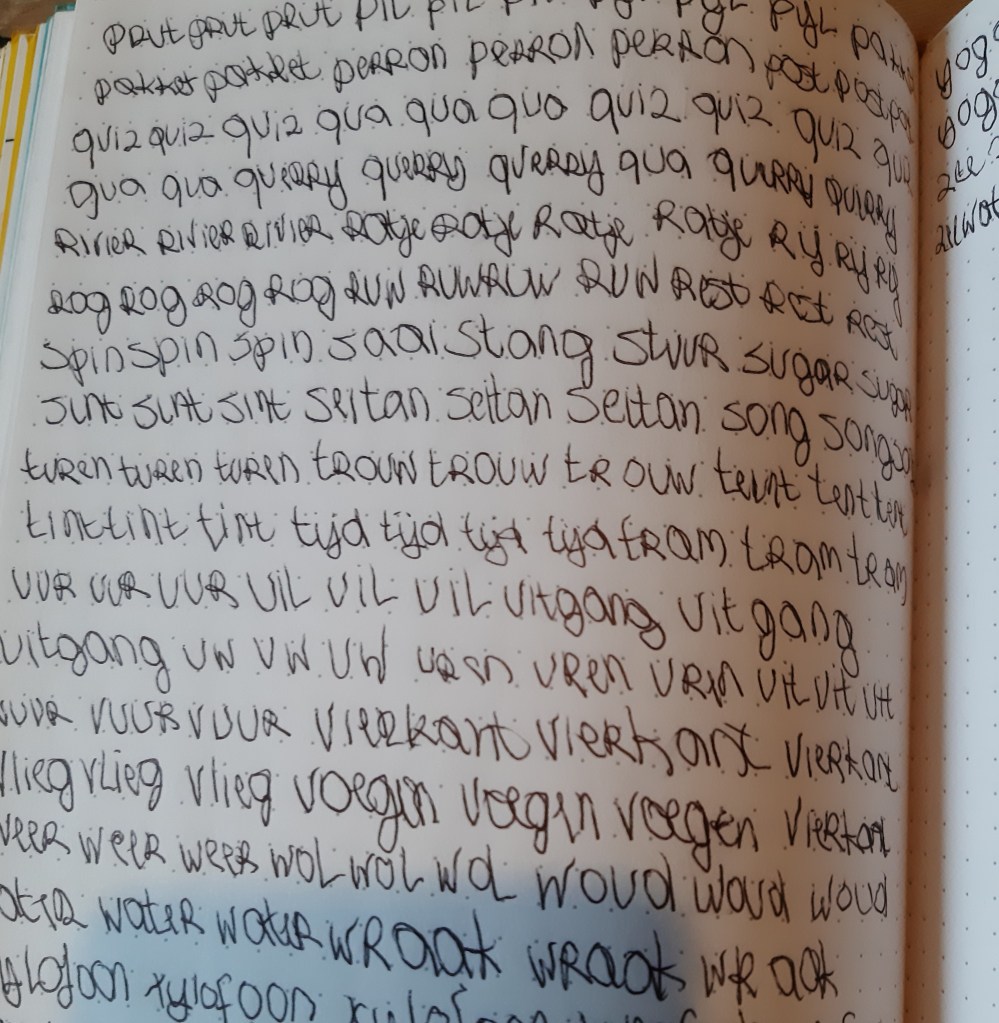 prut prut prut pil pil pyl pyl
pakket pakket perron perron perron post post
quiz quiz quiz qua qua qua quiz quiz quiz
qua qua querry querry querry qua quirry quirry
Rivier Rivier Rivier Ratje Ratje Ratje Ratje Rij Rij Rij
Rog Rog Rog Rog Ruw Ruw Ruw Ruw Rest Rest Rest
spin spin spin saai stang stuur sugar sugar
sint sint sint seitan seitan seitan song song
turen turen turen trouw trouw trouw teint tent
tint tint tint tijd tijd tijd tijd tram tram tram
uur uur uur uil uil uil uitgang uitgang
uitgang uw uw uw uren uren urin uit uit uit
vuur vuur vuur vierkant vierkant vierkant
vlieg vlieg vlieg voegen voegen voegen vierkant
weer weer weer wol wol wol woud woud woud
water water water wraak wraak wraak
xylofoon xylofoon
yoga
yoga
zee